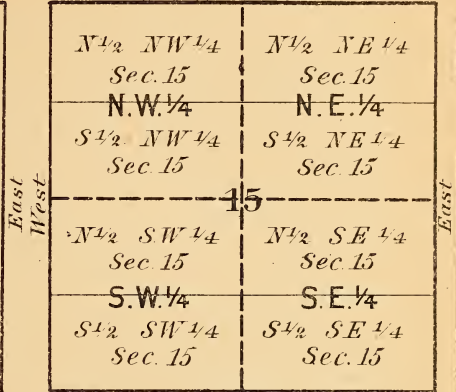 N½ NW¼
Sec. 15
N.W.¼
S½ NW¼
Sec. 15
N½ NE¼
Sec. 15
N.E.¼
S½ NE¼
Sec. 15
15
N½ SW¼
Sec. 15
S.W.¼
S½ SW¼
Sec. 15
N½ SE¼
Sec. 15
S.E.¼
S½ SE¼
Sec. 15
East
West
East